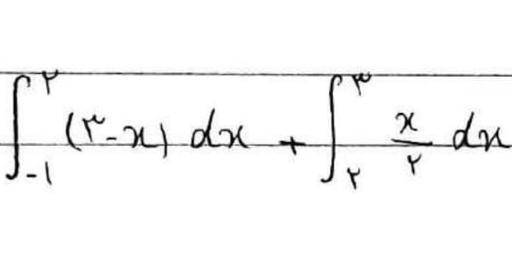 ∫_{-۱}^{۲} (۳-x) dx + ∫_{۲}^{۳} x/۲ dx